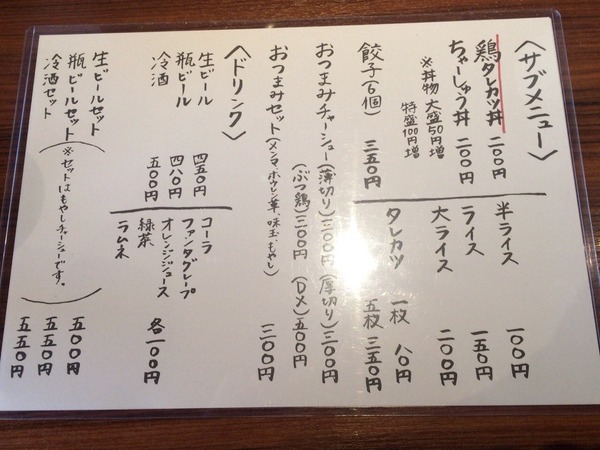 〈サブメニュー〉
鶏タレカツ丼 二〇〇円
ちゃーしゅう丼 二〇〇円
※丼物 大盛50円増
特盛100円増
半ライス 一〇〇円
ライス 一五〇円
大ライス 二〇〇円
餃子(6個) 三五〇円
タレカツ 一枚 八〇円
五枚 三五〇円
おつまみチャーシュー(薄切り)三〇〇円(厚切り)三〇〇円
(ぶつ鶏)三〇〇円(DX)五〇〇円
おつまみセット(メンマ、ホウレン草、味玉、もやし) 三〇〇円
〈ドリンク〉
生ビール 四五〇円
瓶ビール 四八〇円
冷酒 五〇〇円
コーラ
ファンタグレープ
オレンジジュース
緑茶
ラムネ
各一〇〇円
生ビールセット 五〇〇円
瓶ビールセット 五五〇円
冷酒セット 五五〇円
(※セットはもやしチャーシューです。)